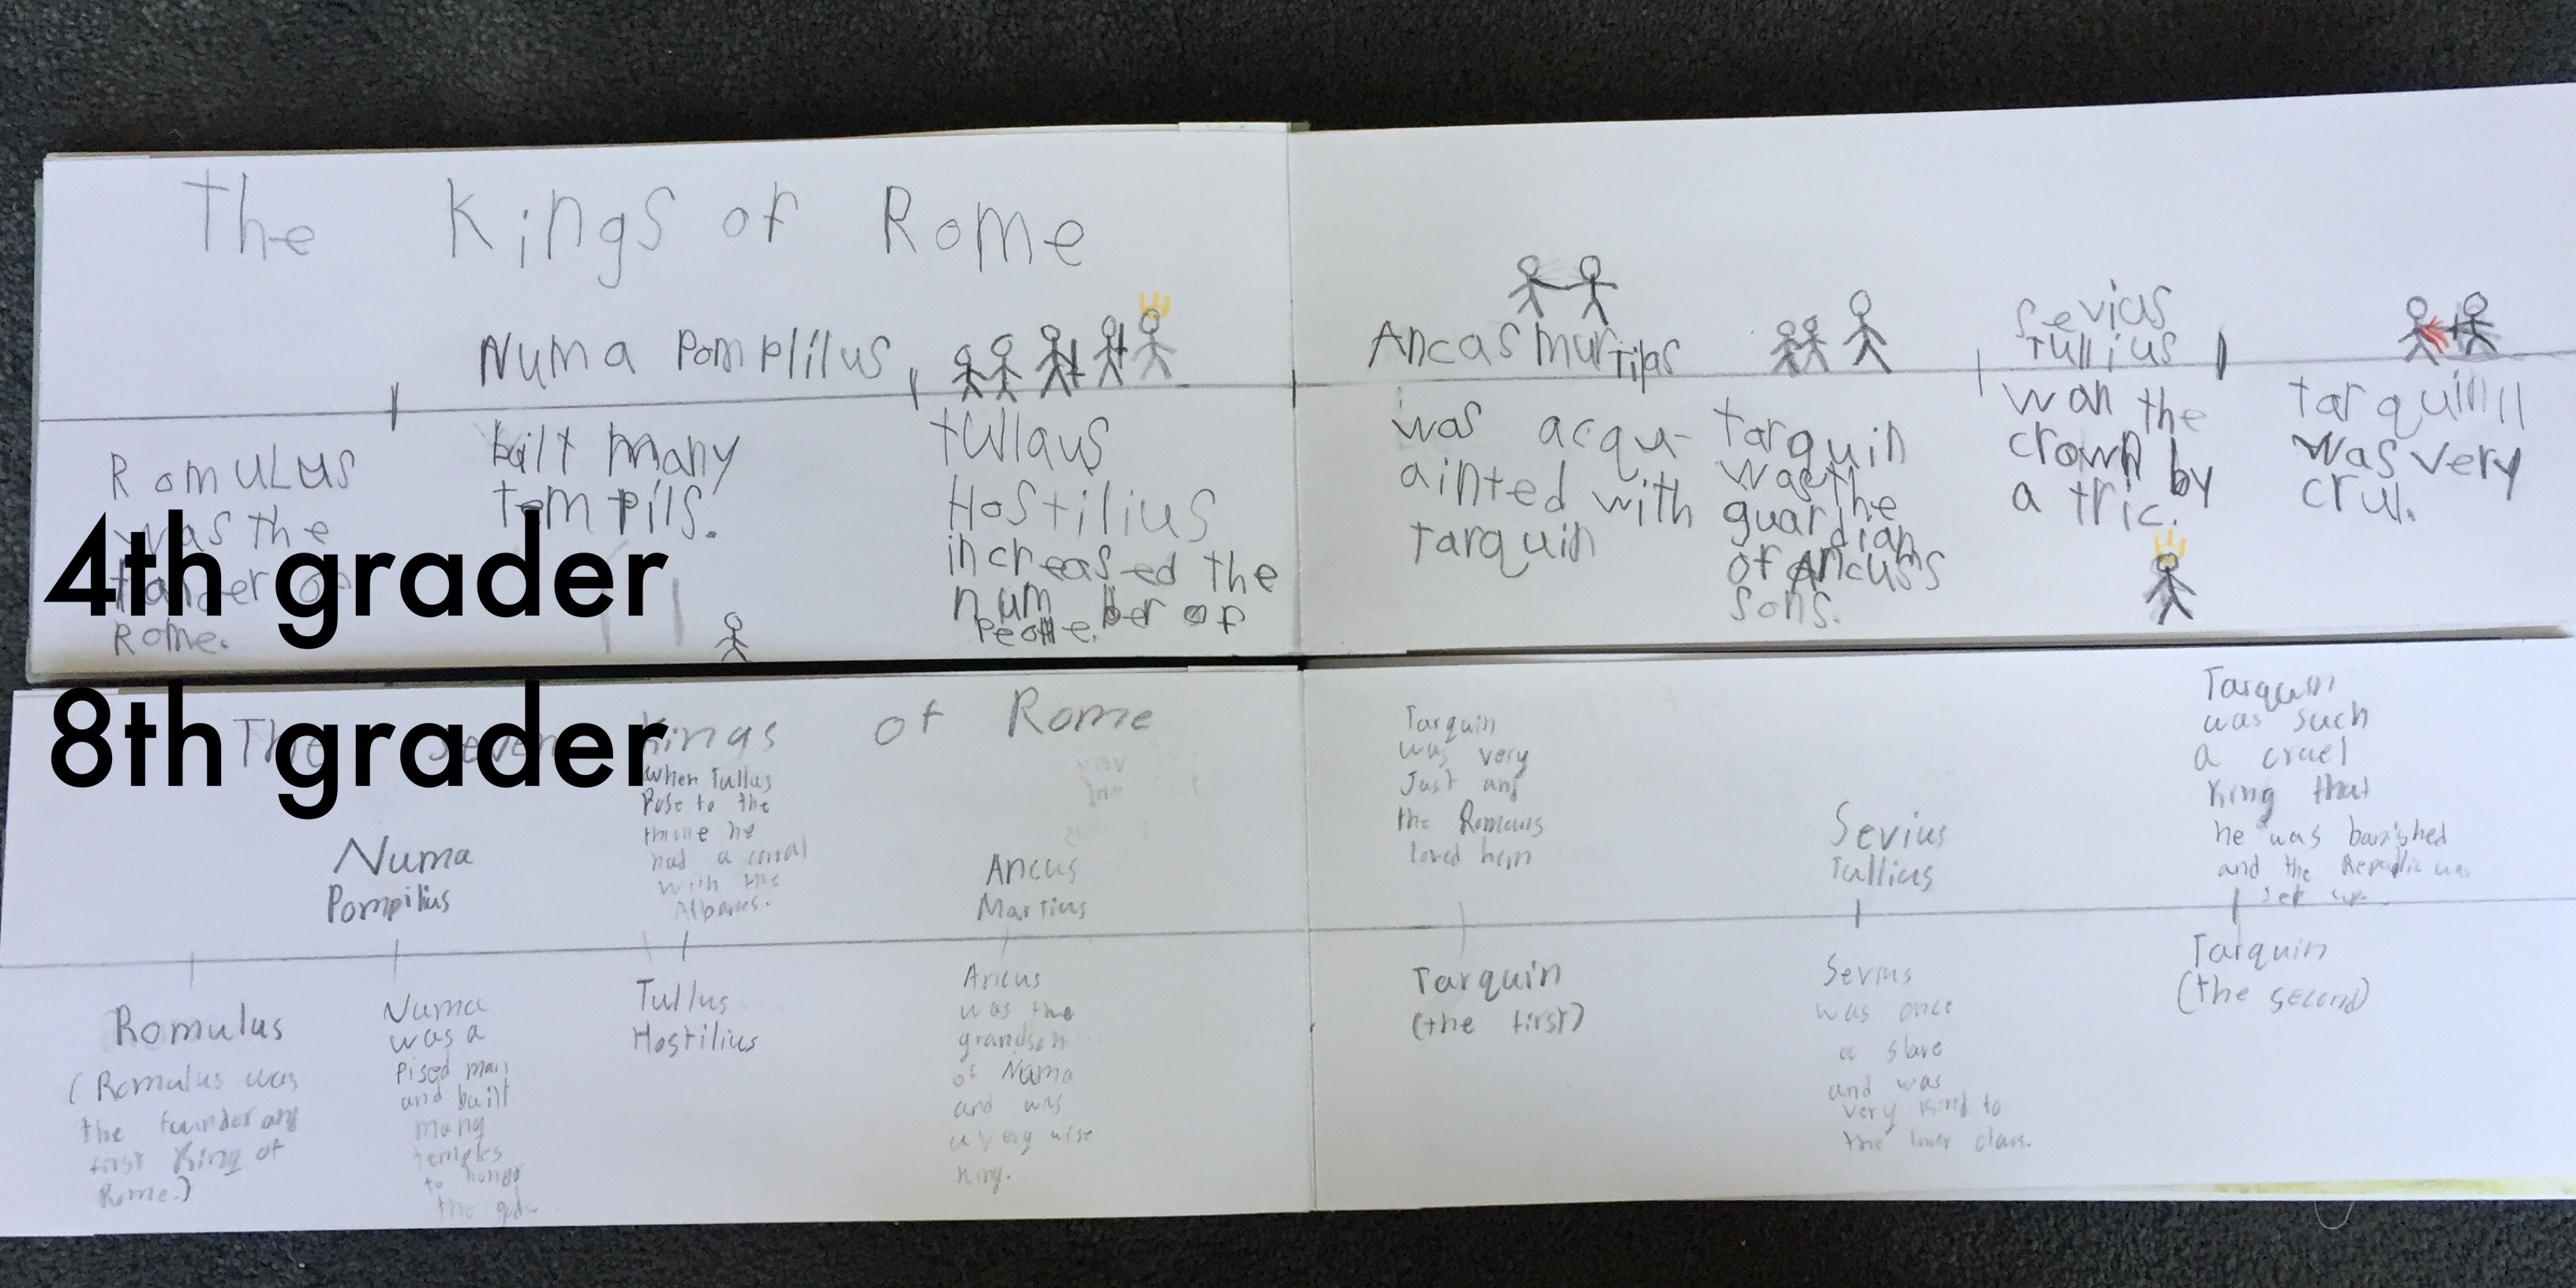 The Kings of Rome
Numa Pomplilus
Romulus
was the
Rome.
bilt many
tempils.
tullaus
Hostilius
increased the
number of
People.
Ancas murtias
was acqu-
ainted with
Tarquin
tarquin
was the
guardian
of Ancuss
sons.
Sevius
Tullius
wan the
crown by
a tric.
tarquin II
was very
crul.
4th grader
8th grader
The Seven Kings of Rome
Romulus
(Romulus was
the founder and
first King of
Rome.)
Numa
Pompilius
Numa
was a
man
and built
many
temples
to honor
the gods.
When Tullus
Rose to the
throne he
had a
with the
Albanes.
Tullus
Hostilius
Ancus
Martius
Ancus
was the
grandson
of Numa
and was
a very wise
King.
Tarquin
was very
Just and
the Romans
loved him
Tarquin
(the first)
Sevius
Tullius
Sevius
was once
a slave
and was
very kind to
the lower class.
Tarquin
was such
a cruel
King that
he was banished
and the Republic was
set up.
Tarquin
(the second)